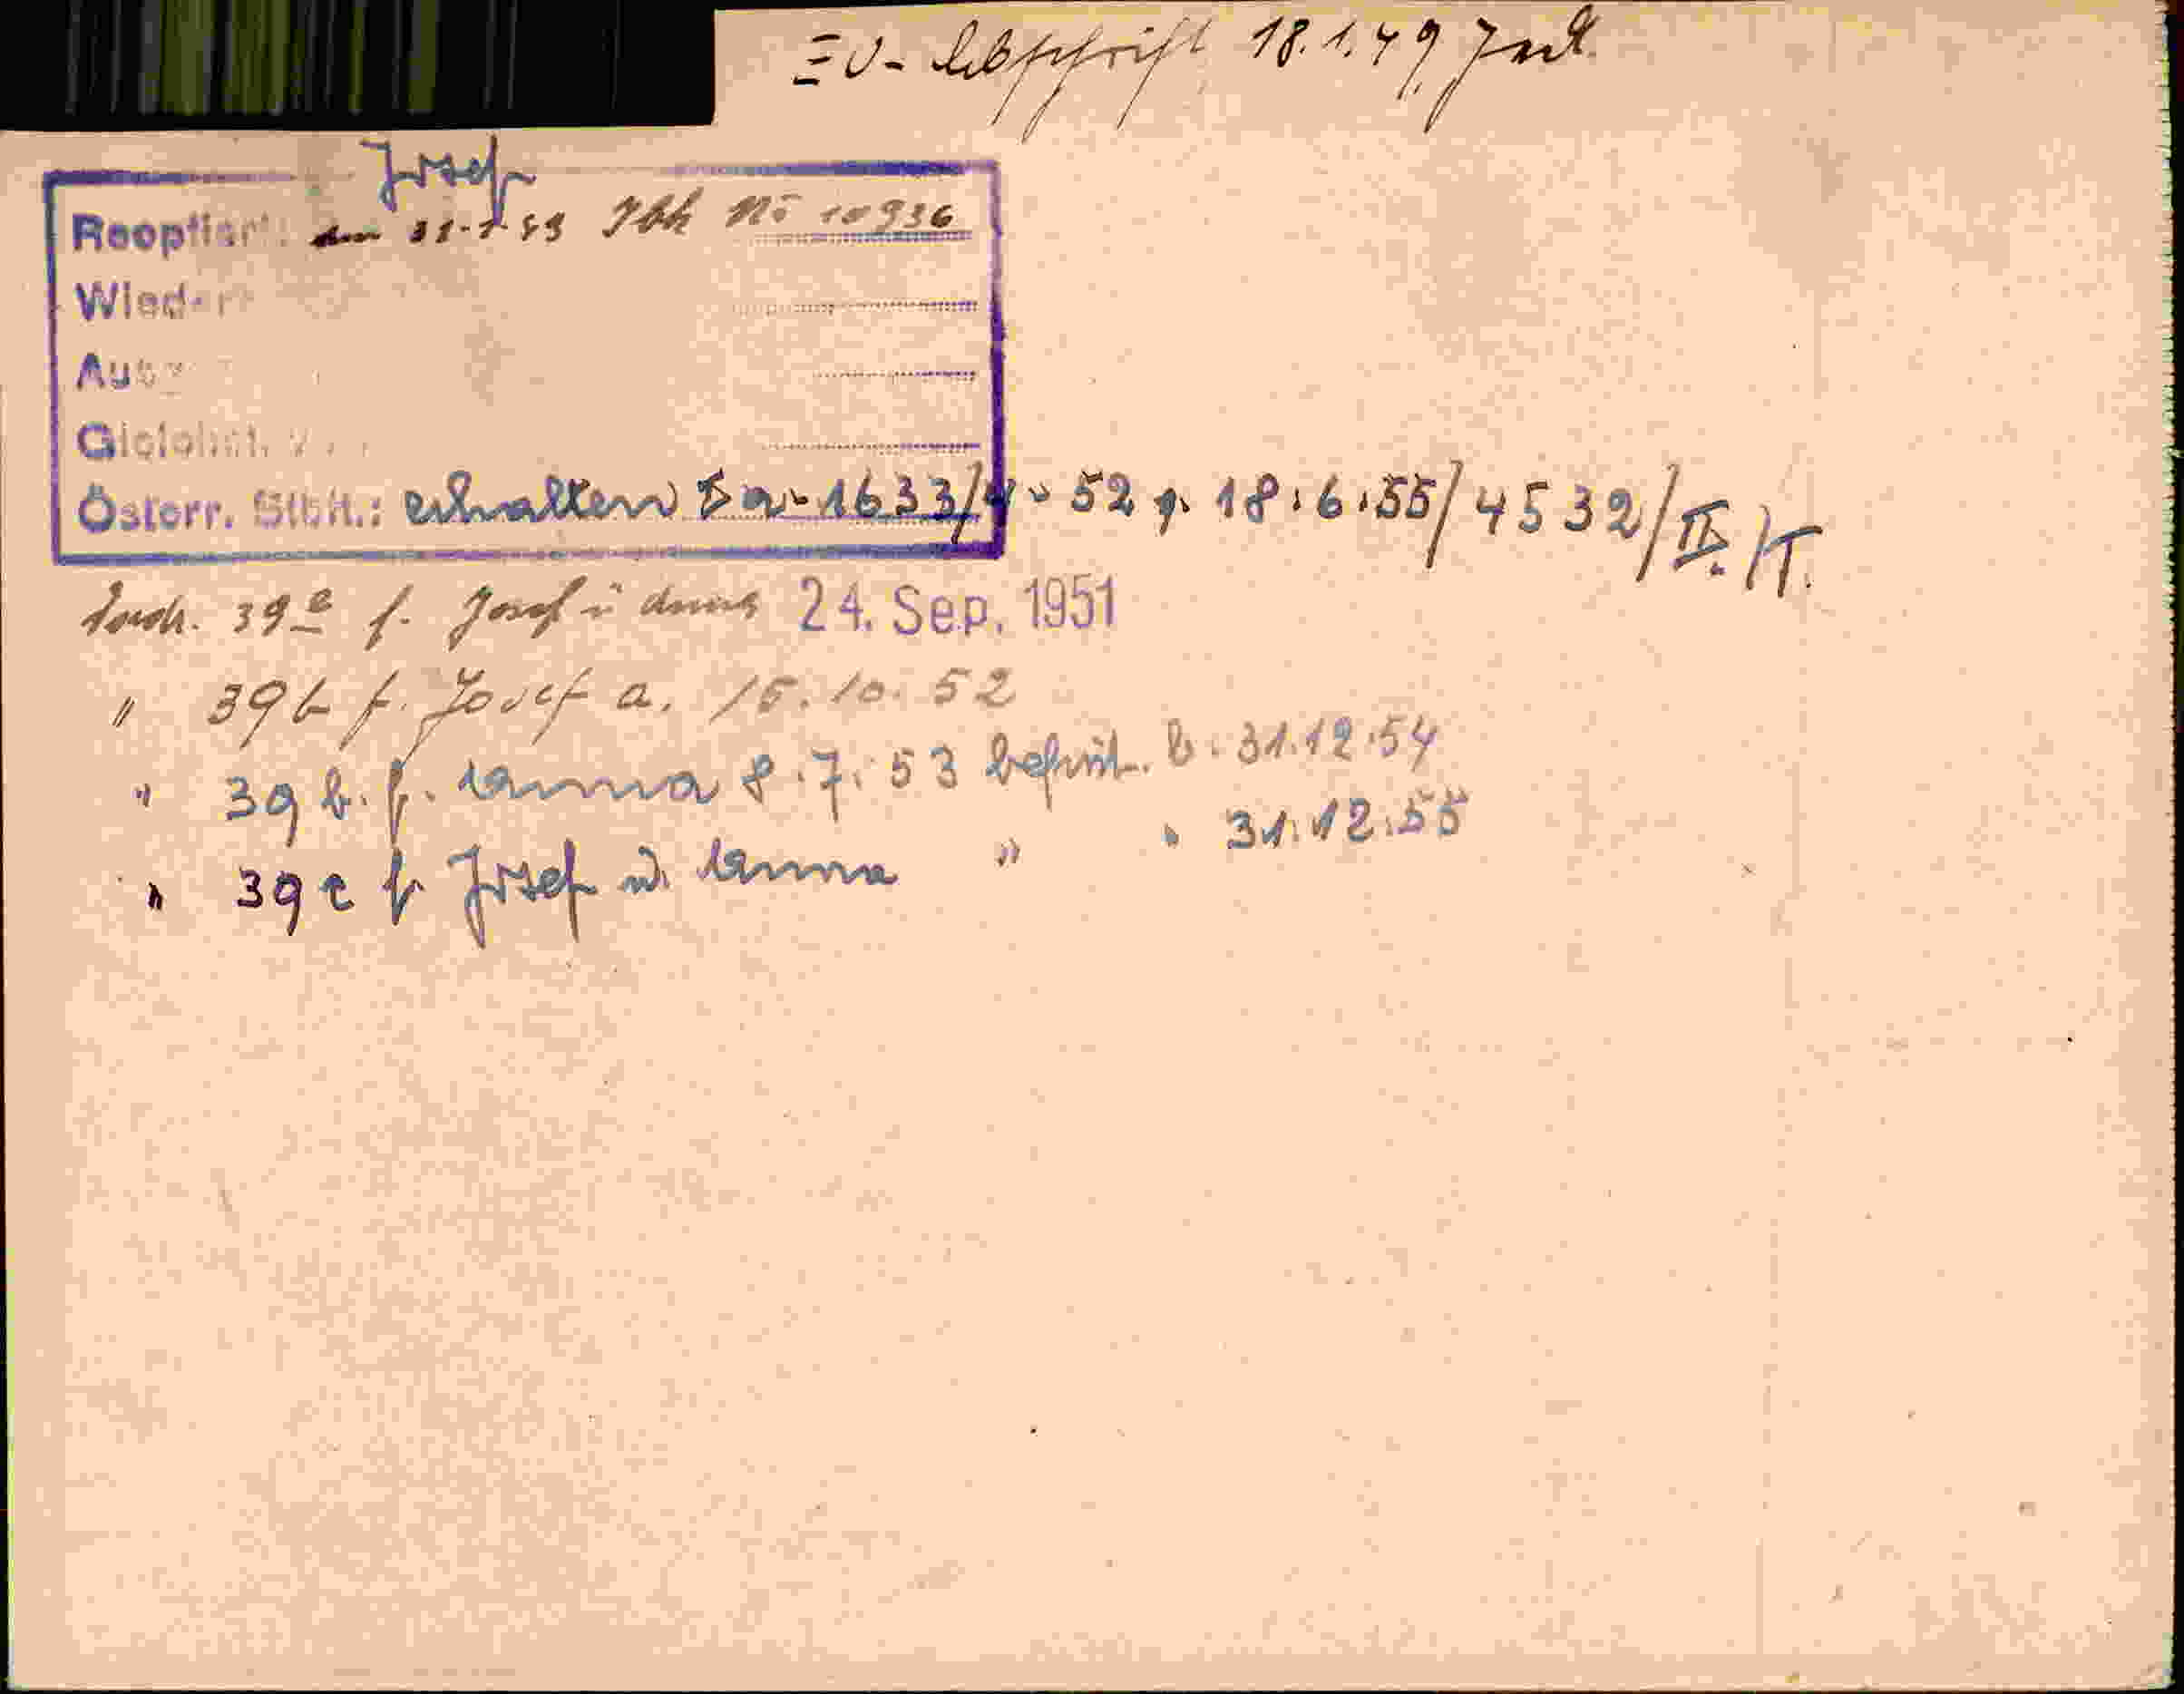 EV-Abschrift 18.1.49
Josef
Reoptiert: den 31-1-49 No 10936
Wieder
Ausz
Gleichst.
Österr. Stbft.: erhalten I a-1633/4-52 v. 18.6.55/4532/II./T.
39a f. Josef u Anna 24. Sep. 1951
" 39b f. Josef a. 15.10.52
" 39b. f. Anna 8.7.53 befrist. b. 31.12.54
" 39c f Josef u. Anna " " 31.12.55